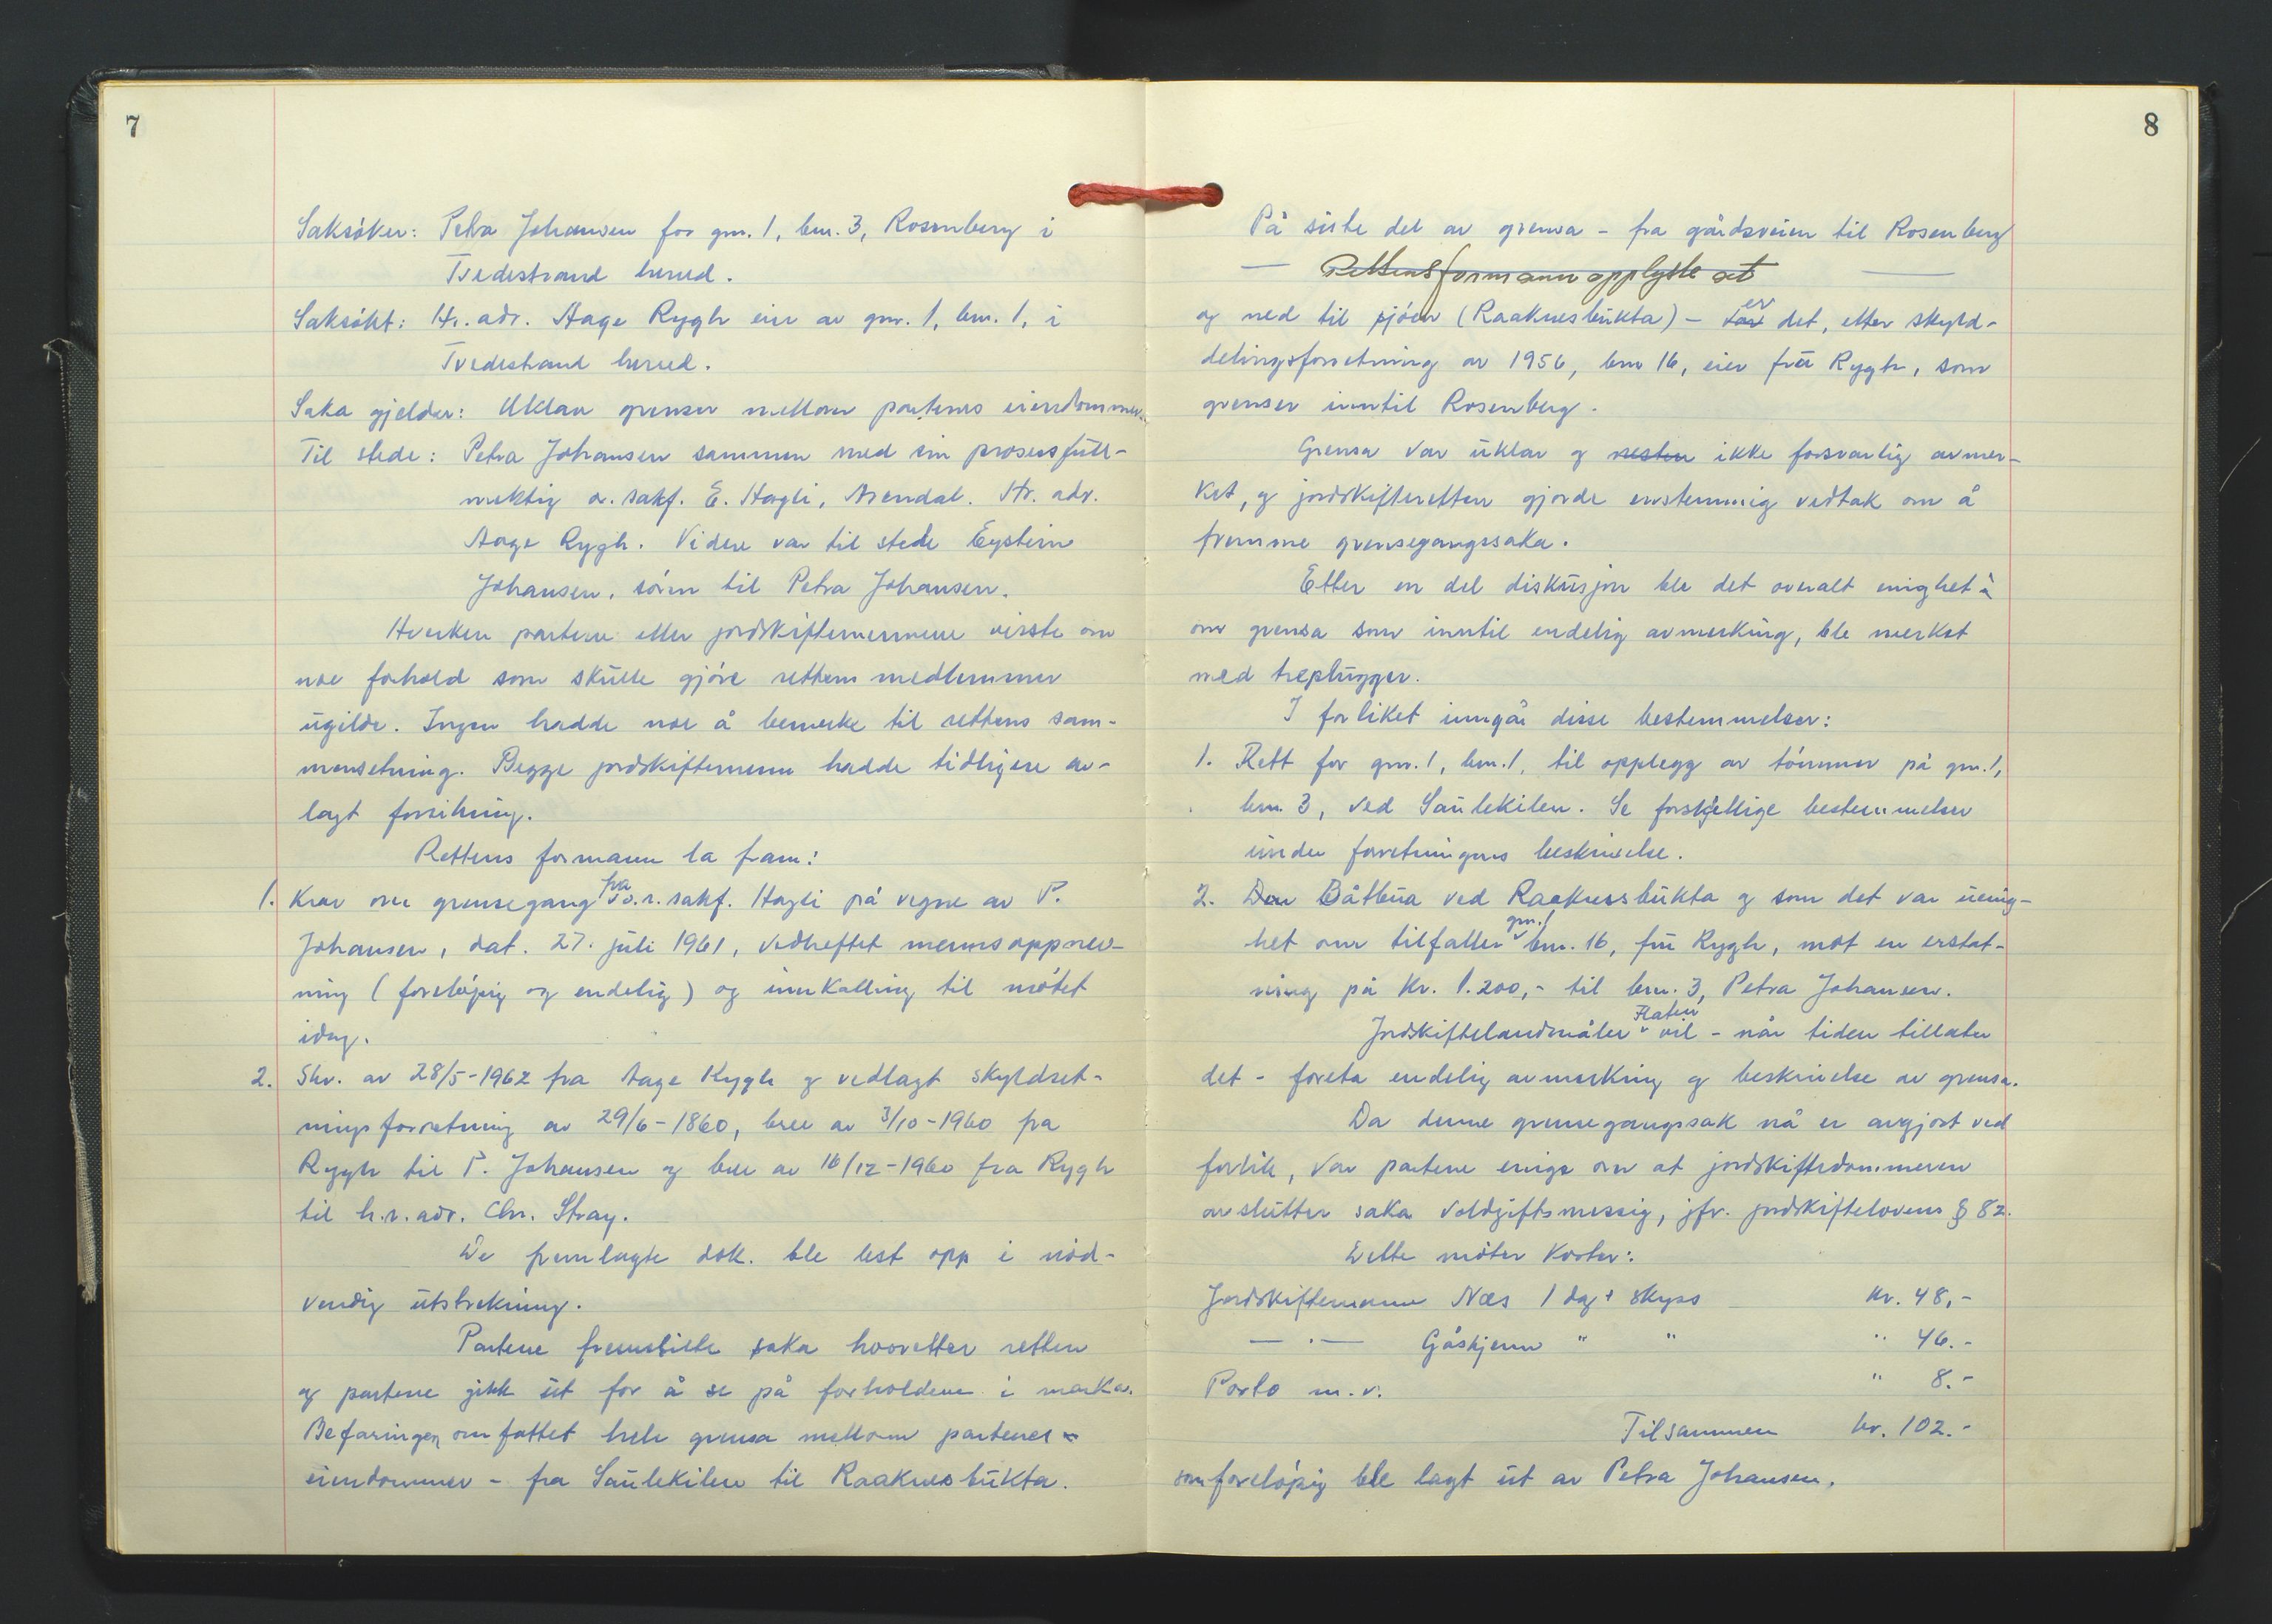 7
Saksøker: Petra Johansen for gnr. 1, bnr. 3, Rosenberg i
Tvedestrand herred.
Saksøkt: H.r.adv. Aage Rygh eier av gnr. 1, bnr. 1, i
Tvedestrand herred.
Saka gjelder: Uklare grenser mellom partenes eiendommer.
Til stede: Petra Johansen sammen med sin prosessfull-
mektig o.r.sakf. E. Hagli, Arendal. H.r. adv.
Aage Rygh. Videre var til stede Eystein
Johansen, sønn til Petra Johansen.
Hverken partene eller jordskiftemennene visste om
noe forhold som skulle gjøre rettens medlemmer
ugilde. Ingen hadde noe å bemerke til rettens sam-
mensetning. Begge jordskiftemenn hadde tidligere av-
lagt forsikring.
Rettens formann la fram:
1. Krav om grensegang fra o.r.sakf. Hagli på vegne av P.
Johansen, dat. 27. juli 1961, vedheftet mannsoppnev-
ning (foreløpig og endelig) og innkalling til møtet
idag.
2. Skr. av 28/5-1962 fra Aage Rygh og vedlagt skyldset-
ningsforretning av 29/6-1860, brev av 3/10-1960 fra
Rygh til P. Johansen og brev av 16/12-1960 fra Rygh
til h.r.adv. Chr. Stray.
De fremlagte dok. ble lest opp i nød-
vendig utstrekning.
Partene fremstilte saka hvoretter retten
og partene gikk ut for å se på forholdene i marka.
Befaringen omfattet hele grensa mellom partenes
eiendommer - fra Saulekilen til Raaknesbukta.
8
På siste del av grensa - fra gårdsveien til Rosenberg
— Rettens formann opplyste at —
og ned til sjøen (Raaknesbukta) - var er det, etter skyld-
delingsforretning av 1956, bnr 16, eier fru Rygh, som
grenser inntil Rosenberg.
Grensa var uklar og nesten ikke forsvarlig avmer-
ket, og jordskifteretten gjorde enstemmig vedtak om å
fremme grensegangssaka.
Etter en del diskusjon ble det overalt enighet
om grensa som inntil endelig avmerking, ble merket
med treplugger.
I forliket inngår disse bestemmelser:
1. Rett for gnr. 1, bnr. 1, til opplegg av tømmer på gnr. 1,
bnr. 3, ved Saulekilen. Se forskjellige bestemmelser
under forretningens beskrivelse.
2. Den Båtbua ved Raaknesbukta og som det var uenig-
het om tilfaller gnr. 1 bnr. 16, fru Rygh, mot en erstat-
ning på kr. 1.200,- til bnr. 3, Petra Johansen.
Jordskiftelandmåler Flaten vil - når tiden tillater
det - foreta endelig avmerking og beskrivelse av grensa.
Da denne grensegangssak nå er avgjort ved
forlik, var partene enige om at jordskiftedommeren
avslutter saka voldgiftsmessig, jfr. jordskiftelovens § 82.
Dette møter koster:
Jordskiftemann Næs 1 dag + skyss kr. 48,-
— " — Gåskjenn " " " 46.-
Porto m.v. " 8.-
Tilsammen kr. 102.-
som foreløpig ble lagt ut av Petra Johansen.